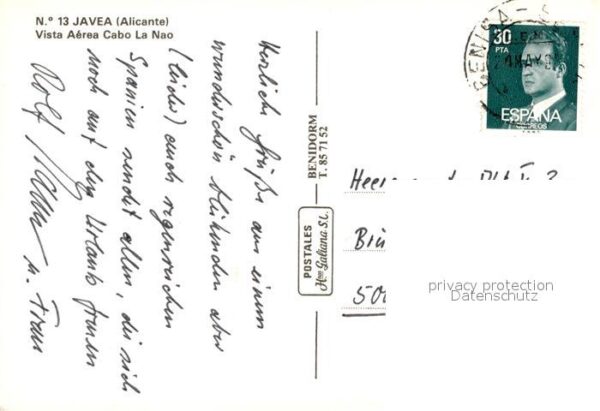 N.º 13 JAVEA (Alicante)
Vista Aérea Cabo La Nao
Herzliche Grüße aus einem
wunderschön blühenden aber
(leider) auch regenreichen
Spanien sendet allen, die sich
noch auf den Urlaub freuen
Rolf
u. Frau
BENIDORM
T. 85 71 52
POSTALES
Hnos Galiana S.L.
30
PTA
ESPAÑA
CORREOS
BENICA
MAY
privacy protection
Datenschutz